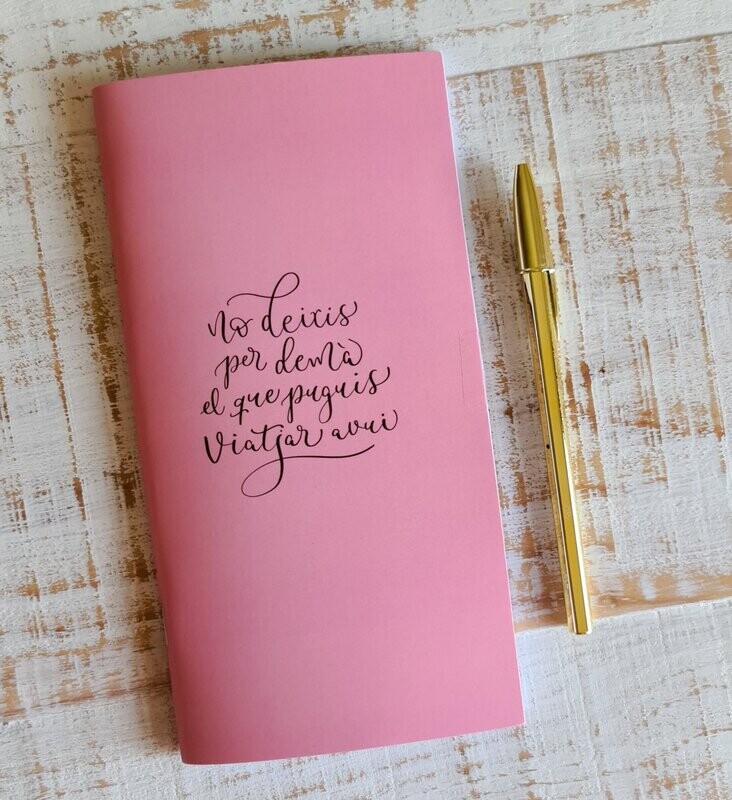 no deixis
per demà
el que puguis
viatjar avui